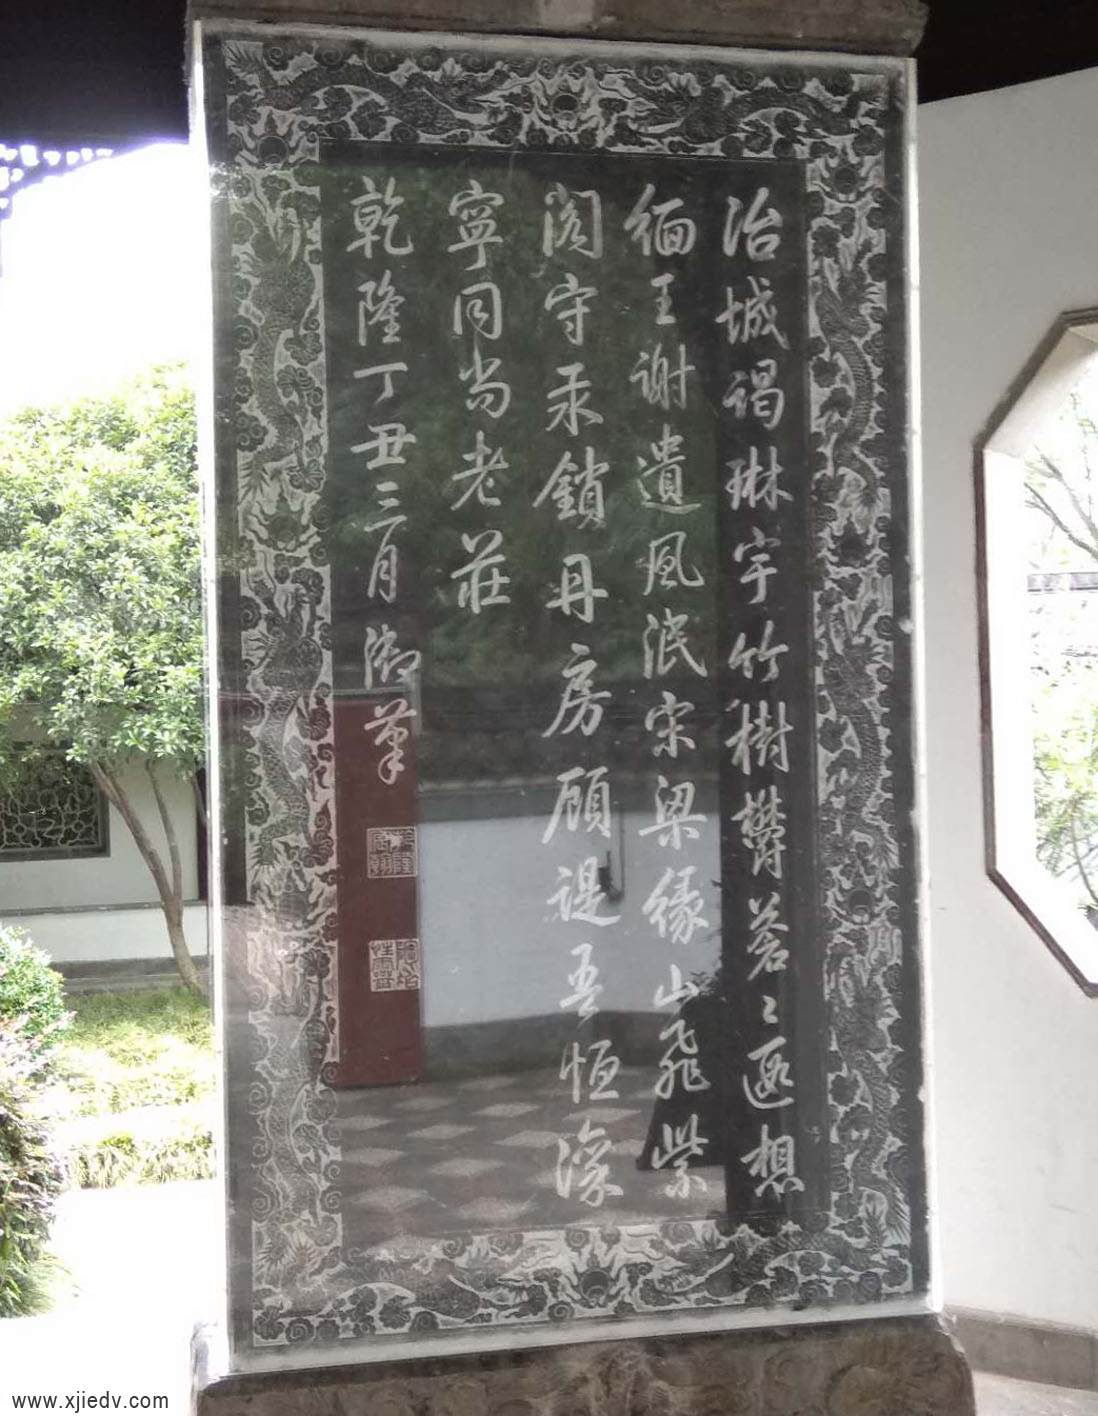 冶城謁琳宇竹樹欝蒼〻遐想
緬王謝遺風泯宋梁緣山飛紫
閣守汞鎖丹房顧諟吾恒深
寧同尚老莊
乾隆丁丑三月御筆
乾隆宸翰
陶冶性靈
www.xjiedv.com